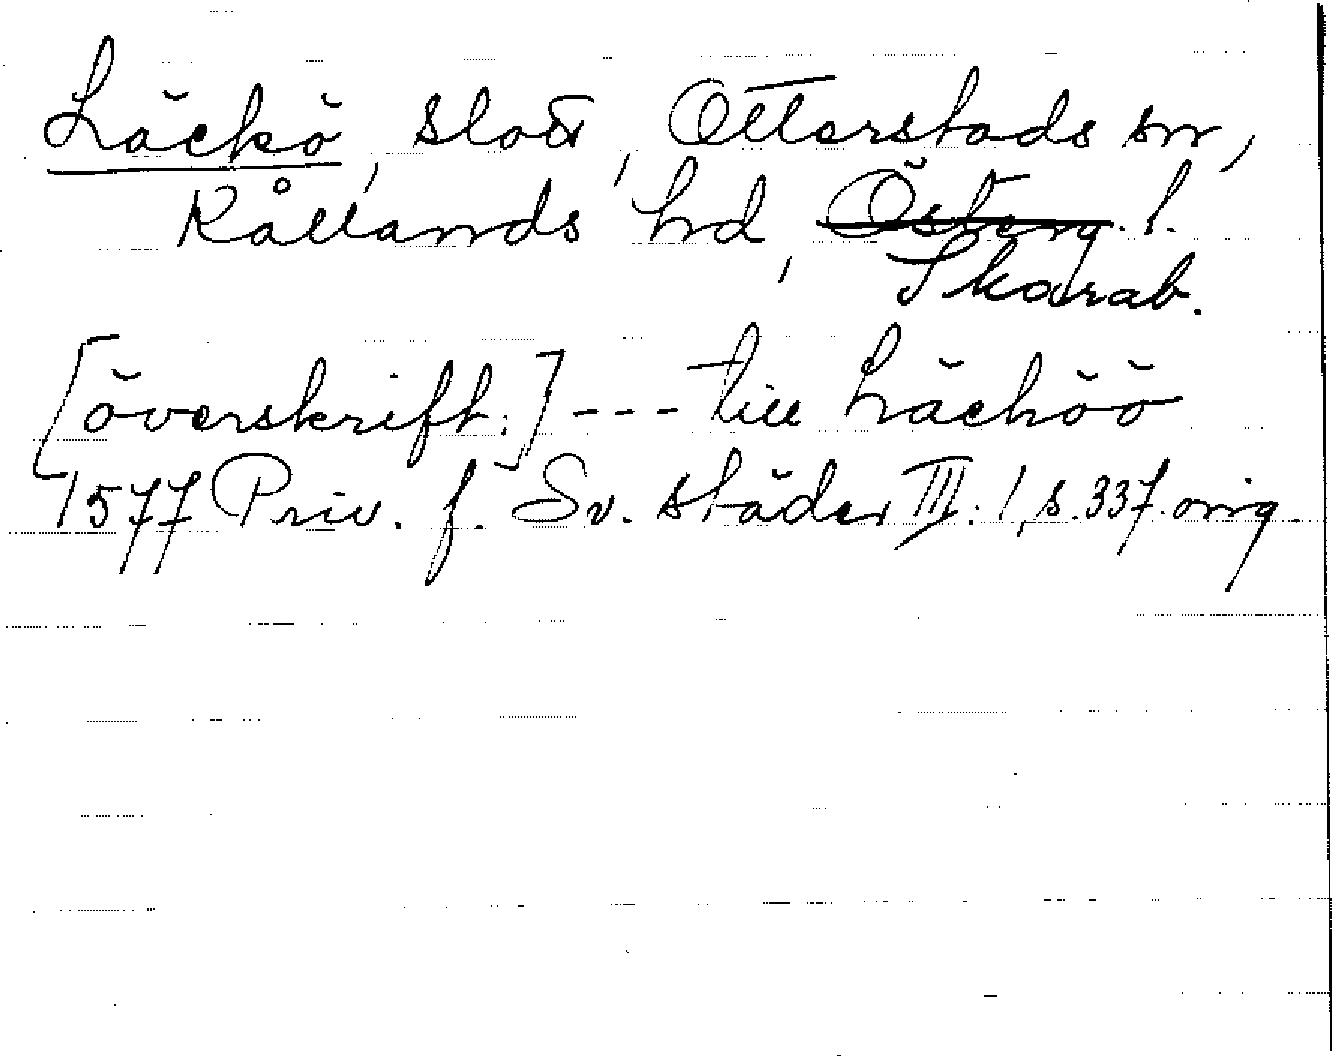 Läckö, slott, Otterstads sn,
Kållands hd, Österg. l.
Skarab.
[överskrift:] --- till Lächöö
1577 Priv. f. Sv. städer III:1, s. 337. orig.